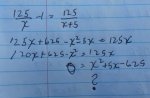 125/x - 1 = 125/x+5
125x+625-x²-5x=125x
120x+625-x²=125x
0=x²+5x-625
?